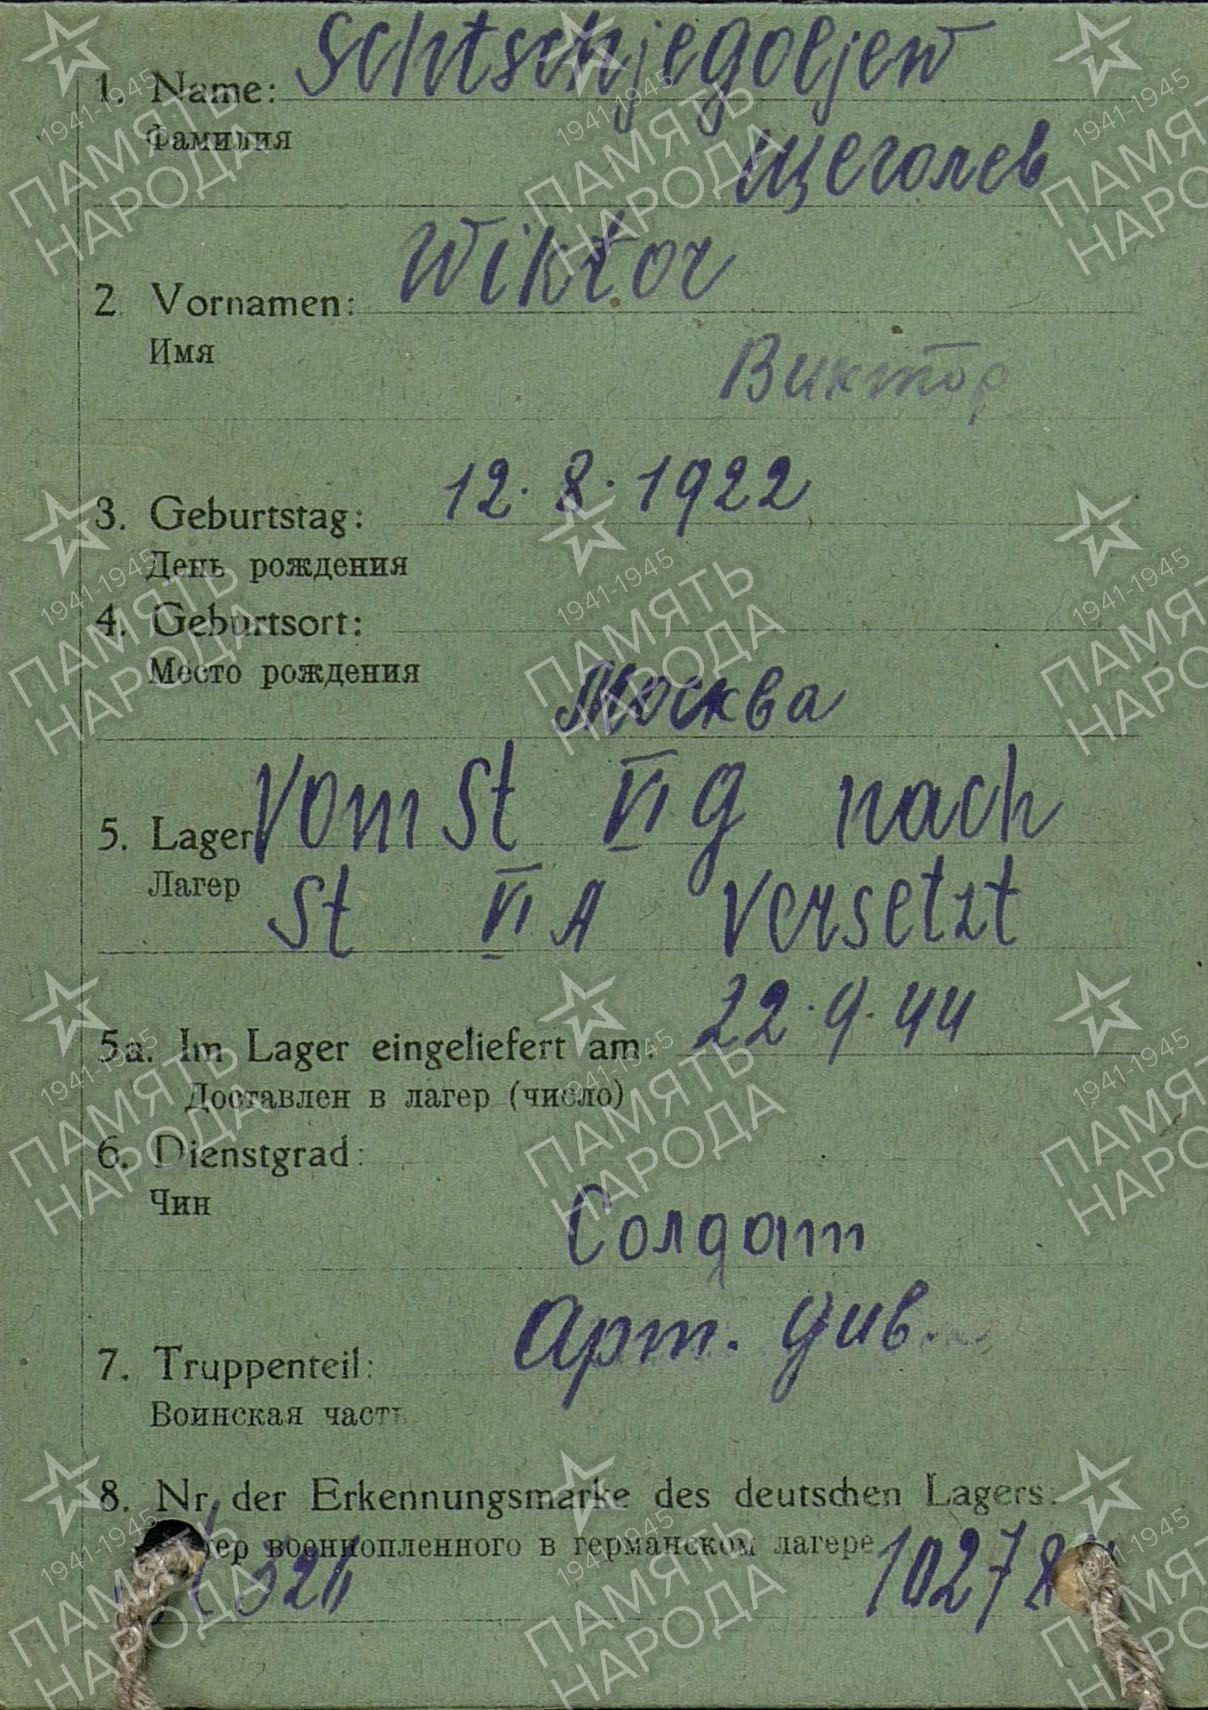 1. Name: Schtschjegoljew
Фамилия
Щеголев
2. Vornamen: Wiktor
Имя
Виктор
3. Geburtstag: 12.8.1922
День рождения
4. Geburtsort:
Место рождения
Москва
5. Lager Vom St VI G nach
Лагер St VI A versetzt
22.9.44
5a. Im Lager eingeliefert am:
Доставлен в лагер (число)
6. Dienstgrad:
Чин
Солдат
Арт. див.
7. Truppenteil:
Воинская часть
8. Nr. der Erkennungsmarke des deutschen Lagers:
ер военнопленного в германском лагере
326 10278
1941-1945
ПАМЯТЬ
НАРОДА